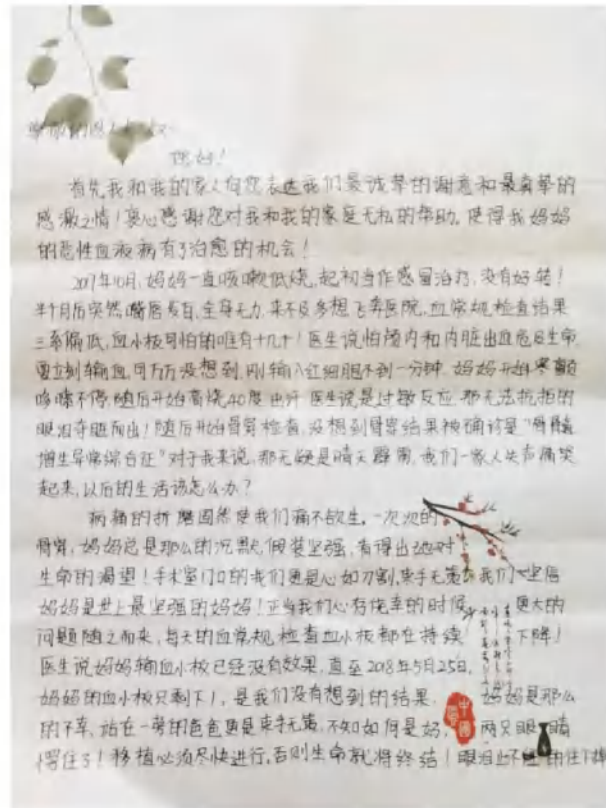 您好！
首先我和我的家人向您表达我们最诚挚的谢意和最真挚的
感激之情！衷心感谢您对我和我的家庭无私的帮助，使得我妈妈
的恶性血液病有了治愈的机会！
2017年10月，妈妈一直咳嗽低烧，起初当作感冒治疗，没有好转！
半个月后突然嘴唇发白，全身无力，来不及多想飞奔医院，血常规检查结果
三系偏低，血小板可怕的唯有十几个！医生说怕颅内和内脏出血危及生命
要立刻输血，可万万没想到，刚输入红细胞不到一分钟，妈妈开始寒颤
哆嗦不停，随后开始高烧40度出汗 医生说是过敏反应，那无法抗拒的
眼泪夺眶而出！随后开始骨穿检查，没想到骨穿结果被确诊是“骨髓
增生异常综合征”对于我来说，那无疑是晴天霹雳，我们一家人失声痛哭
起来，以后的生活该怎么办？
病痛的折磨固然使我们痛不欲生，一次次的
骨穿，妈妈总是那么的沉默，假装坚强，看得出她对
生命的渴望！手术室门口的我们更是心如刀割，束手无策 我们坚信
妈妈是世上最坚强的妈妈！正当我们心存侥幸的时候 更大的
问题随之而来，每天的血常规检查血小板都在持续 下降！
医生说妈妈输血小板已经没有效果，直至2018年5月25日，
妈妈的血小板只剩下1，是我们没有想到的结果， 妈妈是那么
的不幸，站在一旁的爸爸更是束手无策，不知如何是好， 两只眼睛
愣住了！移植必须尽快进行，否则生命就将终结！眼泪止不住的往下掉
中国